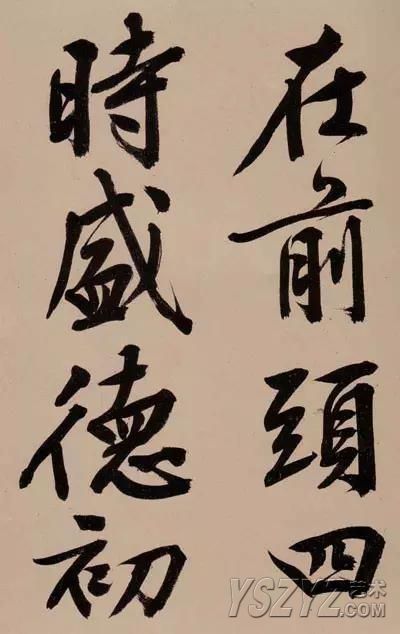 在前頭四
時盛德初
YSZYZ艺术
.COM